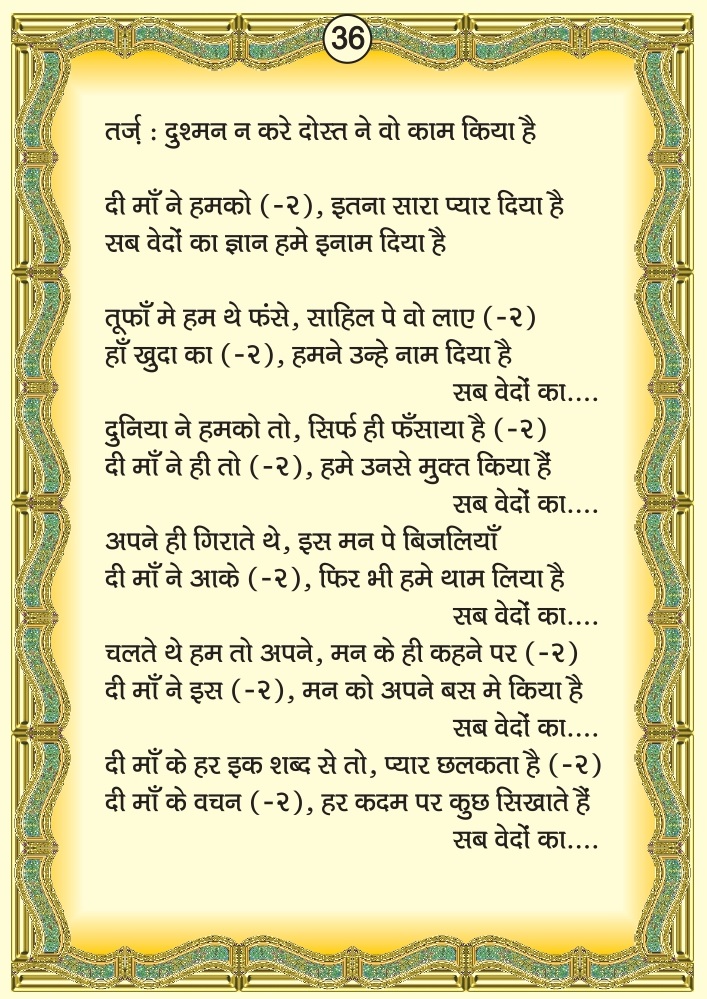 36
तर्ज़ : दुश्मन न करे दोस्त ने वो काम किया है
दी माँ ने हमको (-२), इतना सारा प्यार दिया है
सब वेदों का ज्ञान हमे इनाम दिया है
तूफाँ मे हम थे फंसे, साहिल पे वो लाए (-२)
हाँ खुदा का (-२), हमने उन्हे नाम दिया है
सब वेदों का....
दुनिया ने हमको तो, सिर्फ ही फँसाया है (-२)
दी माँ ने ही तो (-२), हमे उनसे मुक्त किया हैं
सब वेदों का....
अपने ही गिराते थे, इस मन पे बिजलियाँ
दी माँ ने आके (-२), फिर भी हमे थाम लिया है
सब वेदों का....
चलते थे हम तो अपने, मन के ही कहने पर (-२)
दी माँ ने इस (-२), मन को अपने बस मे किया है
सब वेदों का....
दी माँ के हर इक शब्द से तो, प्यार छलकता है (-२)
दी माँ के वचन (-२), हर कदम पर कुछ सिखाते हैं
सब वेदों का....